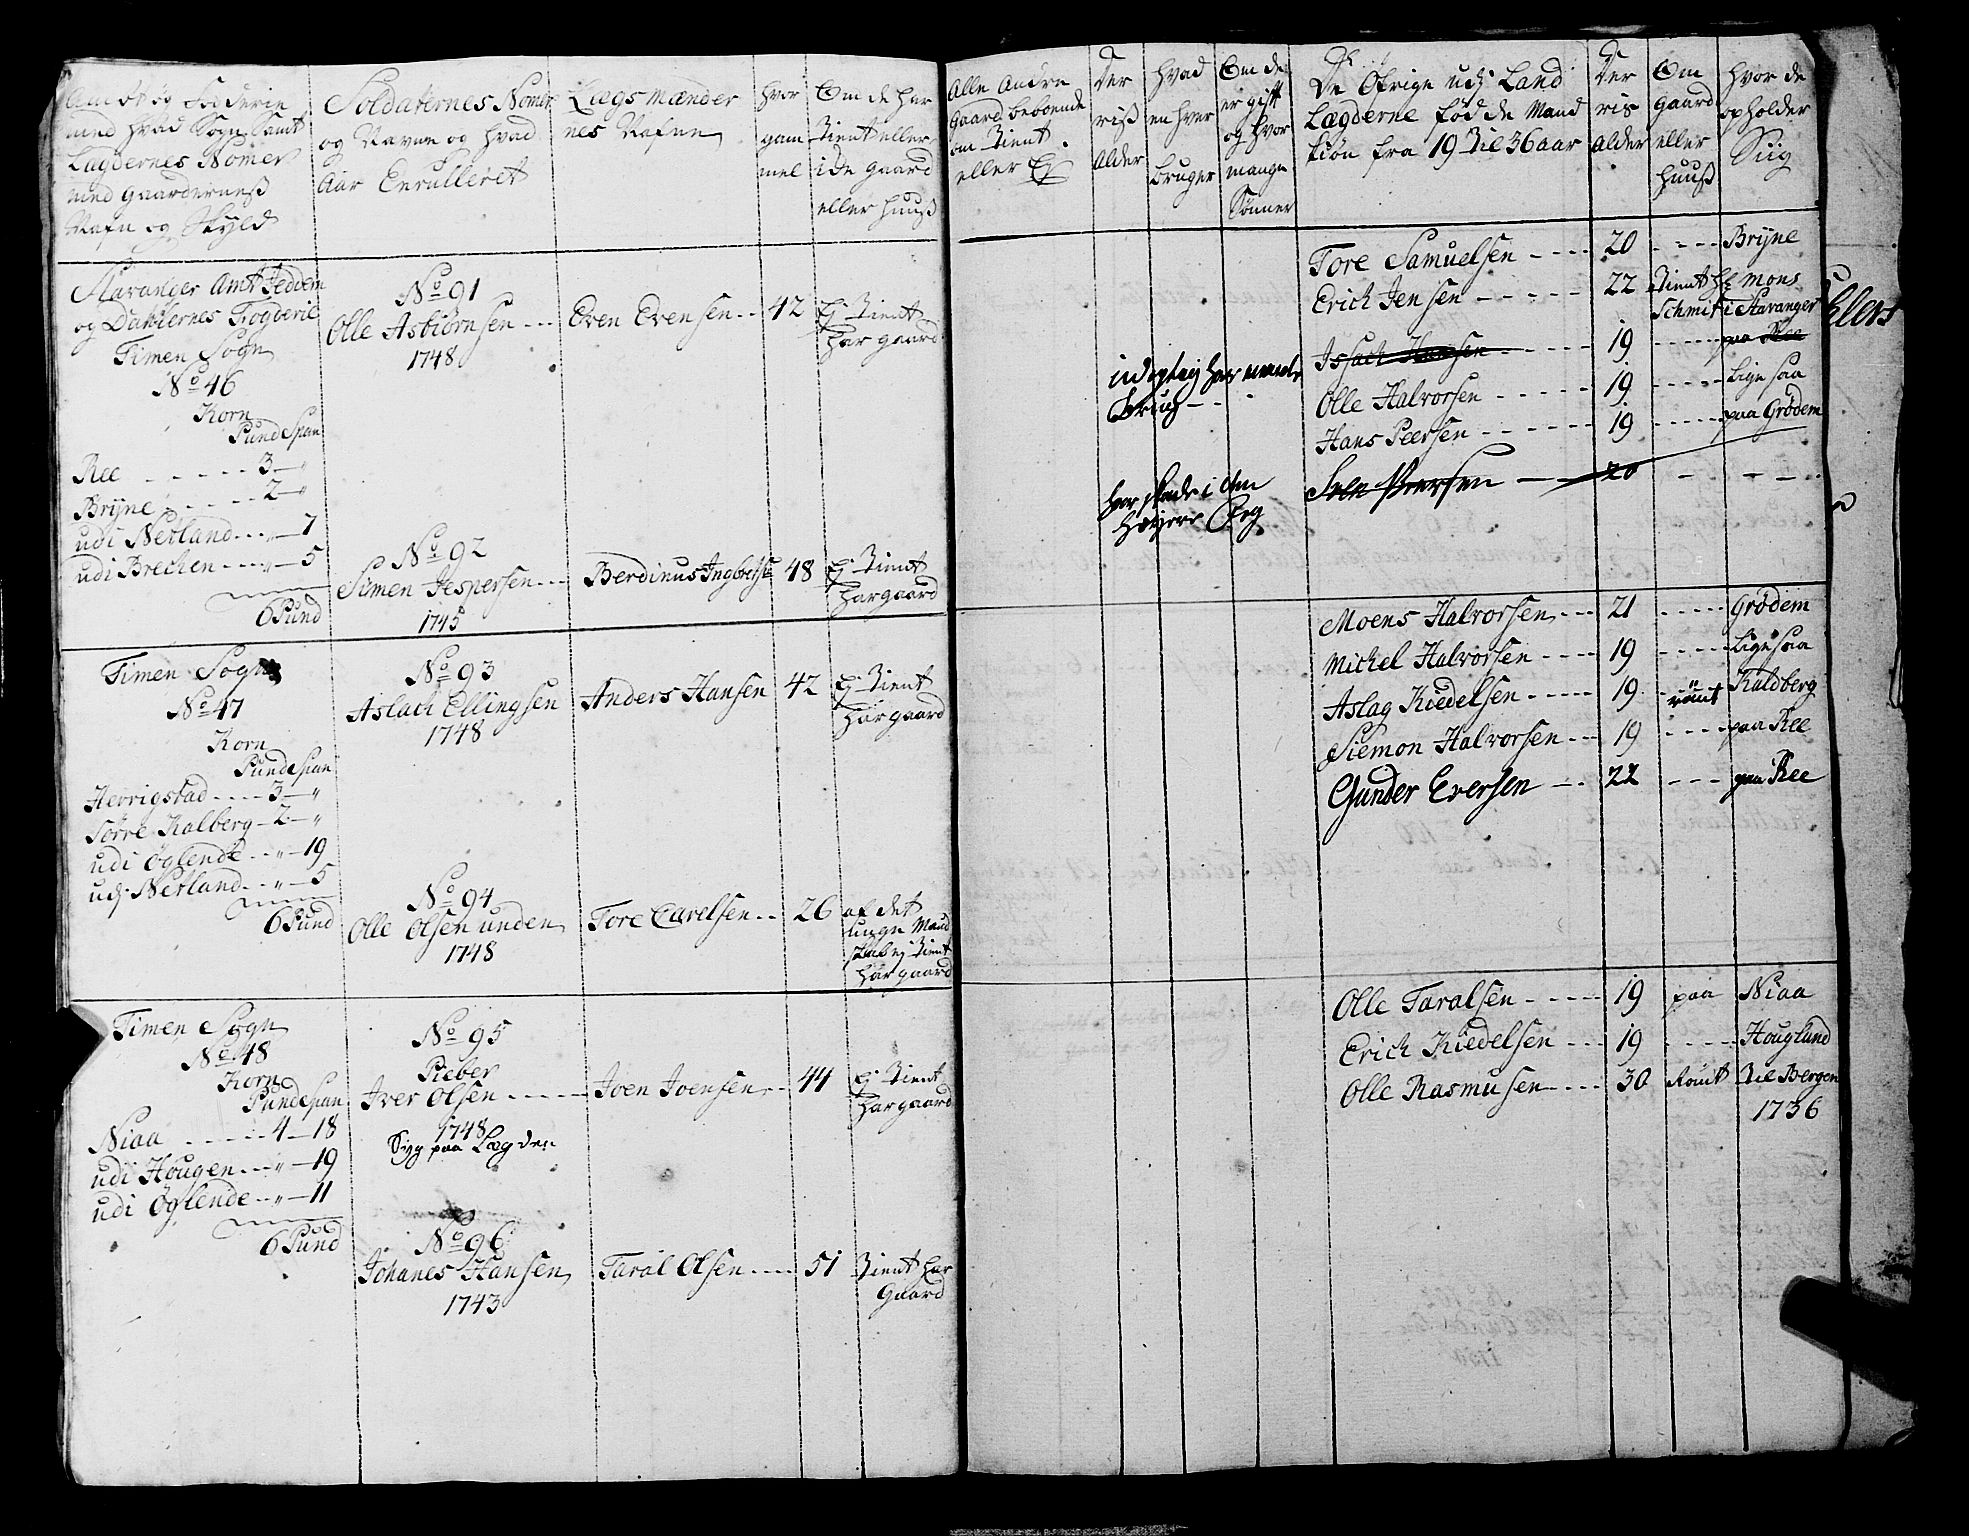 Amt og Fogderie
med hvad Sogn Samt
Lægdernes Nomer
med Gaarderneß
Nafn og Skyld
Soldaternes Nomer
og Navne og hvad
Aar Enrulleret
Lægs Mænder
nes Nafne
hvor
gam
mel
Om de har
Tient eller
i de gaard
eller huuß
Stavanger Amt Jedderen
og Dahlernes Fogderie
Timen Sogn
No 46
Korn
Pund Span
Ree - - - - - 3 - "
Bryne - - - - 2 - "
udi Netland - - - " - 7
udi Brechen - - - " - 5
6 Pund
No 91
Olle Asbiørnsen - - -
1748
Even Evensen - - 42
Ej Tient
har gaard
No 92
Simen Jespersen - - -
1745
Berdinus Ingbretsen 48
Ej Tient
har gaard
Timen Sogn
No 47
Korn
Pund Span
Herrigstad - - - - 3 - "
Sørre Kalberg - 2 - "
udi Øglende - - " - 19
udj Netland - - " - 5
6 Pund
No 93
Aslach Ellingsen
1748
Anders Hansen 42
Ej Tient
har gaard
No 94
Olle Olsen unden
1748
Tore Carelsen - - 26
af det
unge Mand
skab ej Tient
har gaard
Timen Sogn
No 48
Korn
Pund Span
Niaa - - - - - 4 - 18
udi Hougen - - - " - 19
udi Øglende - - " - 11
6 Pund
No 95
Pieber
Iver Olsen - - - - -
1748
Syg paa Lægden
Joen Joensen - - 44
Ej Tient
har gaard
No 96
Johanes Hansen
1743
Taral Olsen - - - - 51
Tient har
Gaard
Alle Andre
Gaard beboende
om Tient
eller Ej
Der
riß
Alder
Hvad
en hver
bruger
Om de
er gift
og hvor
mange
Sønner
De Øfrige udj Land
Lægderne fødde Mand
kiøn fra 19 Til 36 aar
Der
ris
Alder
Om
gaard
eller
huuß
Hvor de
opholder
Siig
Tore Samuelsen - - - - 20 - - - - Bryne
Erich Jensen - - - - - 22 Tient hr Mons
Schmit i Stavanger
Issach Hansen - - - - - 19 - - - - - paa Ree
Olle Halvorsen - - - - - 19 - - - - - Lige saa
Hans Peersen - - - - - - 19 - - - - - paa Grødem
Sven Peersen - - - 20 - - - -
brug - - -
har skade i den
Høyere
Moens Halvorsen - - - 21 - - - - - Grødem
Michel Halvorsen - - - - 19 - - - - - Lige saa
Aslag Kiedelsen - - - - - 19 römt Kaldberg
Siemon Halvorsen - - - 19 - - - - paa Ree
Gunder Eversen - - 22 - - - paa Ree
Olle Taralsen - - - - - 19 paa Niaa
Erich Kiedelsen - - - 19 - - - - - Hougland
Olle Rasmusen - - - - 30 Römt Til Bergen
1736